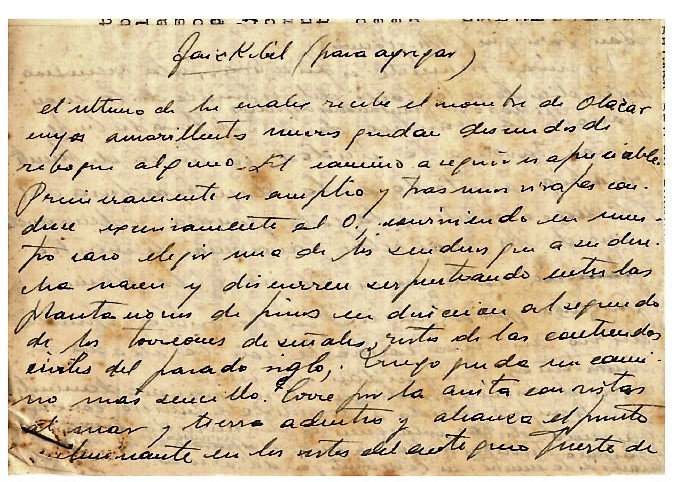 Jaizkibel (para agregar)
el ultimo de los cuales recibe el nombre de Olazar
cuyos amarillentos muros quedan desnudos de
reboque alguno. El camino a seguir es apreciable.
Primeramente es amplio y tras unos virajes con-
duce exclusivamente al O., conviniendo en nues-
tro caso elegir uno de los senderos que a su dere-
cha nacen y discurren serpenteando entre las
plantaciones de pinos en direccion al segundo
de los torreones de señales, restos de las contiendas
civiles del pasado siglo. Luego queda un cami-
no más sencillo. Corre por la arista con vistas
al mar y tierra adentro y alcanza el punto
culminante en los restos del antiguo Fuerte de